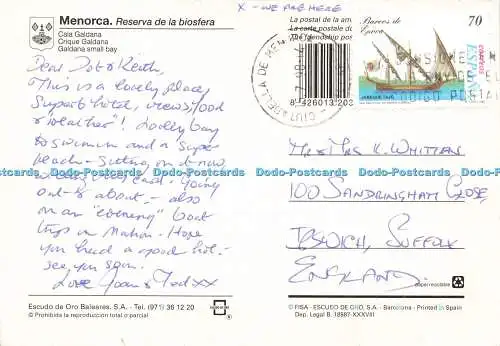 X - WE ARE HERE
Menorca. Reserva de la biosfera
Cala Galdana
Crique Galdana
Galdana small bay
Dear Dot & Keith,
This is a lovely place,
Superb hotel, views, food
& weather! Lovely bay
to swim in and a super
beach - Sitting on it now
Going
out & about - also
on an "evening" boat
trip in Mahon. Hope
you had a good hol. -
see you soon.
Love Joan & Ted xx
Escudo de Oro Baleares, S.A. - Tel. (971) 36 12 20
© Prohibida la reproducción total o parcial
La postal de la am
La carte postale d
The friendship pos
8 426013 202
CIUTADELLA DE MEN
Barcos de
Epoca
70
ESPAÑA
correos
CODIGO POSTAL
Mr & Mrs K. WHITTEN
100 SANDRINGHAM CLOSE,
IPSWICH, SUFFOLK
ENGLAND.
paper recyclable
© FISA - ESCUDO DE ORO, S.A. - Barcelona - Printed in Spain
Dep. Legal B. 18987-XXXVIII
Dodo-Postcards Dodo-Postcards Dodo-Postcards Dodo-Postcards Dodo-Postcards